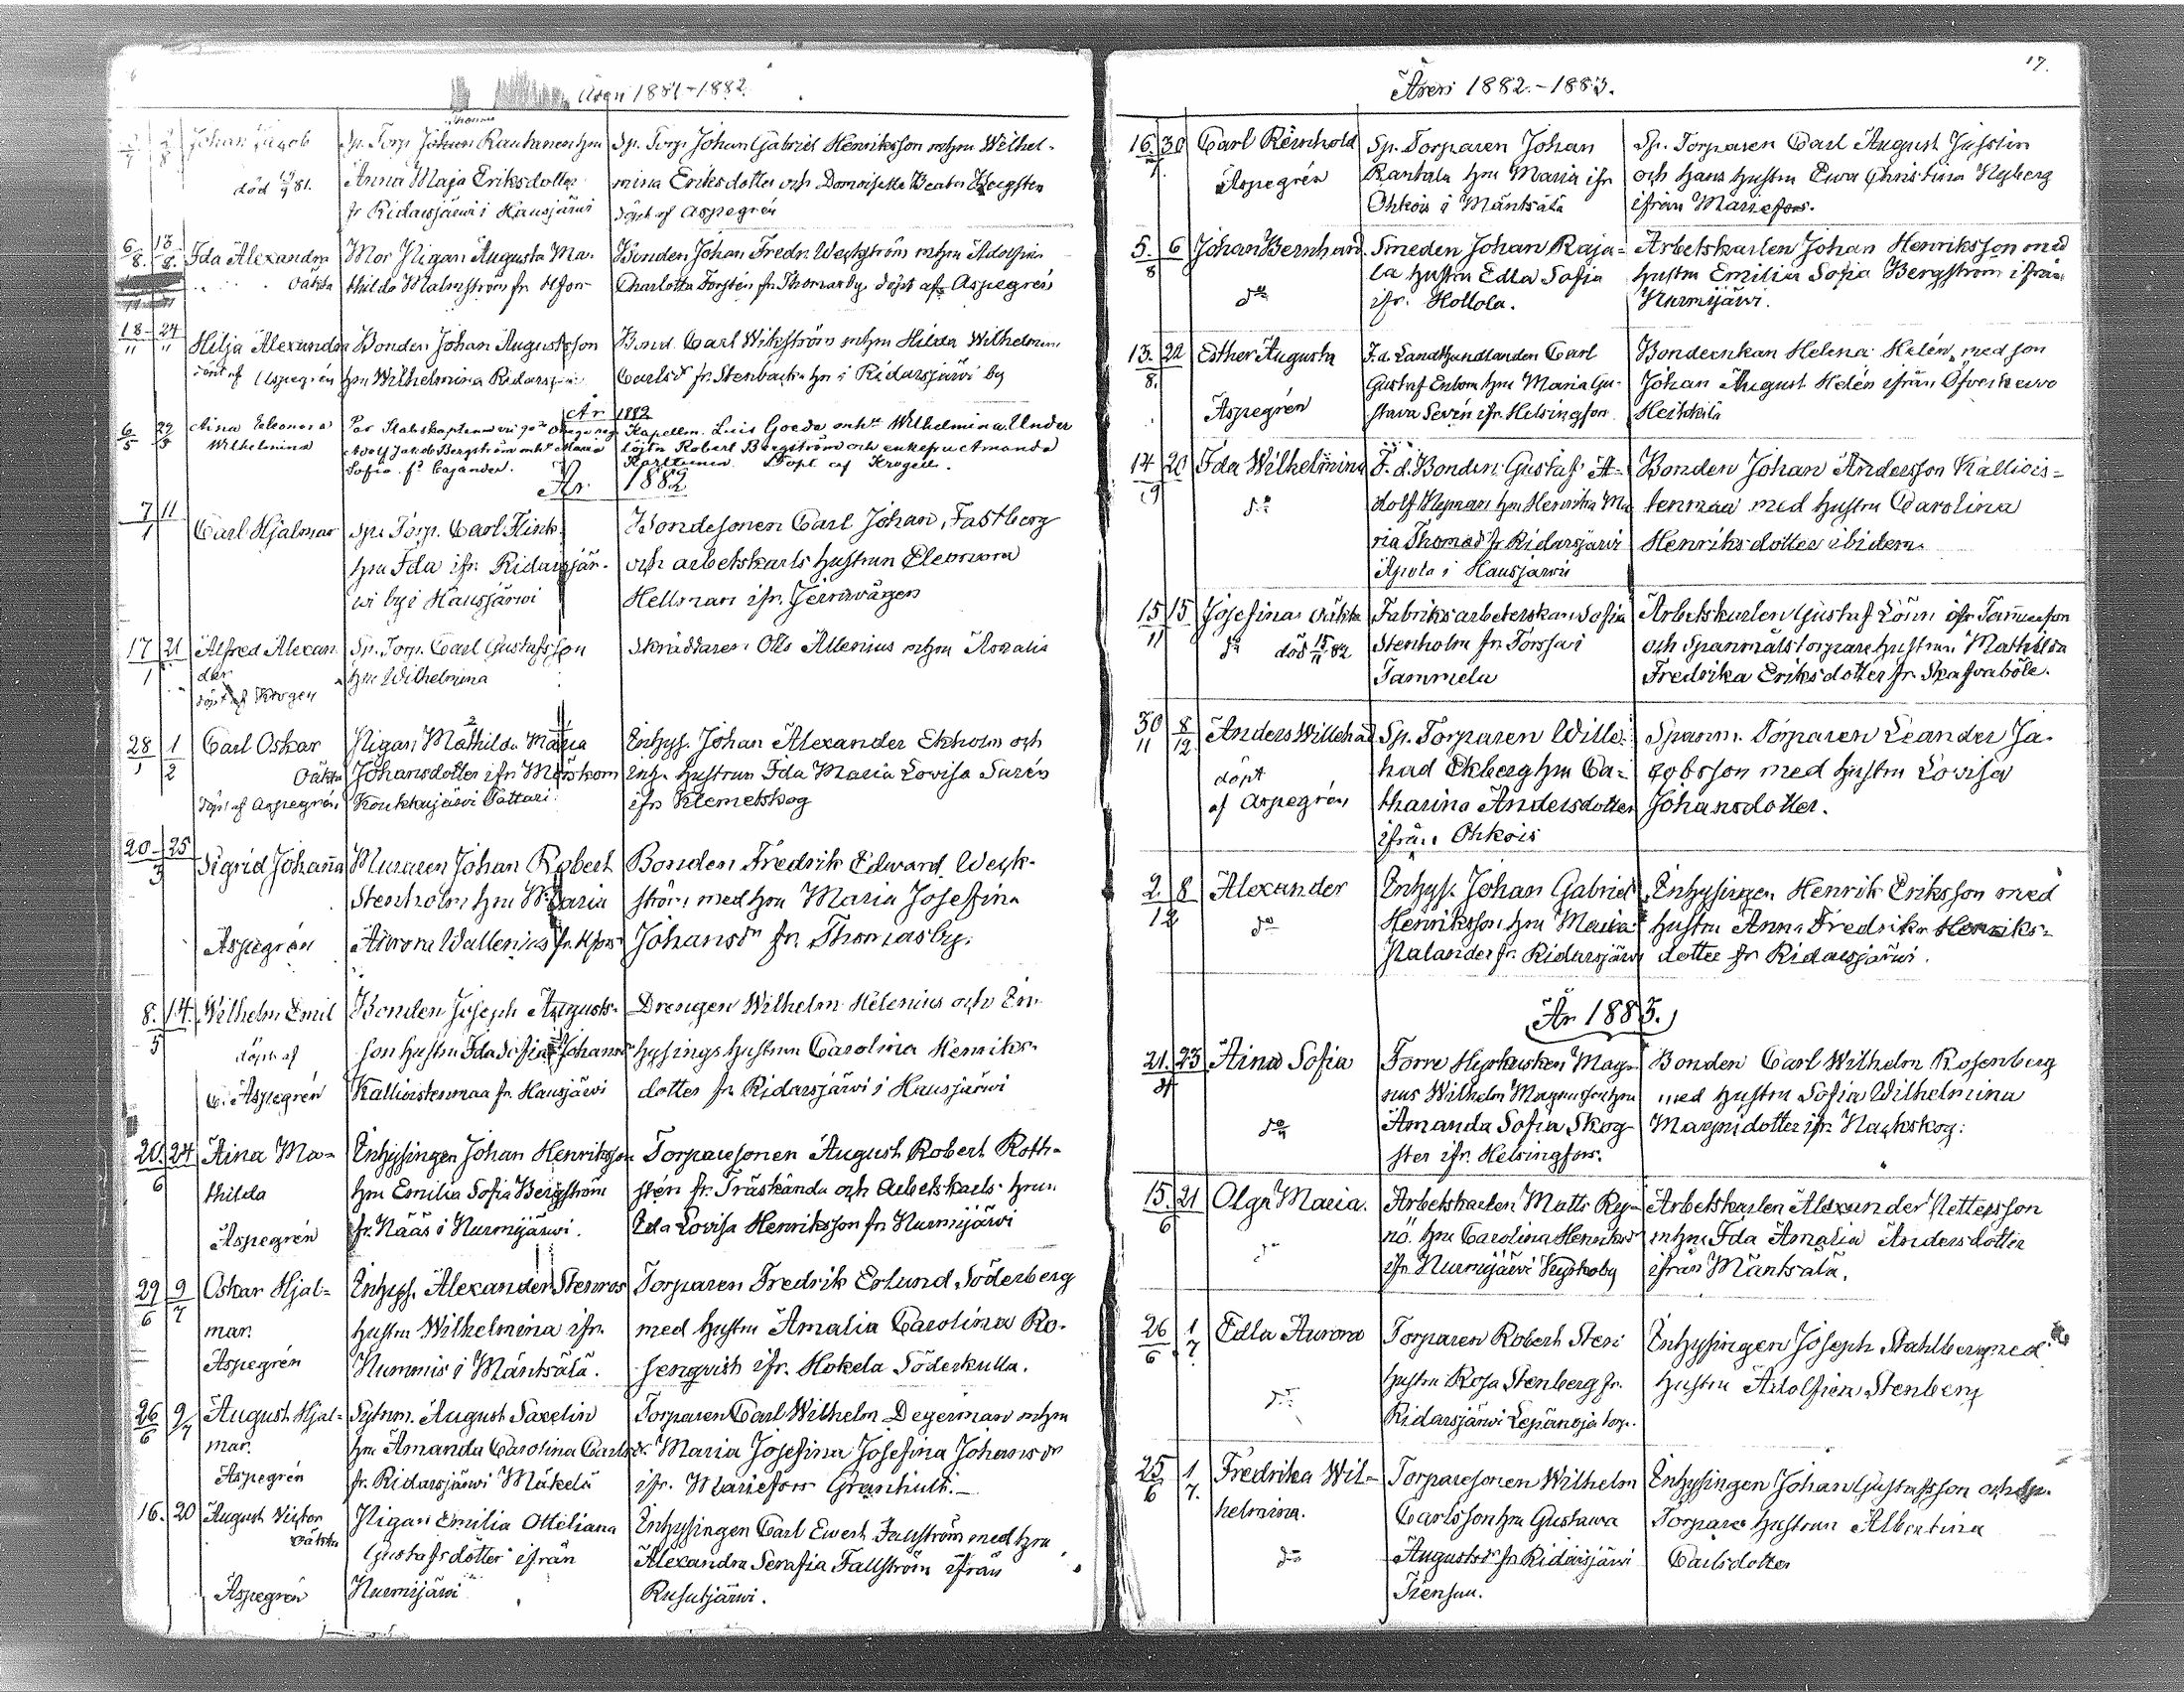 Åren 1881-1882.
Johan Jacob
död 81.
Sp. Torp. Johan Rautanen hru
Anna Maja Eriksdotter
fr Ridarsjärvi i Hausjärvi
Sp. Torp. Johan Gabriel Henriksson mhru Wilhel-
mina Eriksdotter och Demoiselle Beata
döpt af Aspegrén
6/8. 13/8. Ida Alexandra
oäkta
Mor Pigan Augusta Ma-
thilda Malmström fr. Hfors
Bonden Johan Fredr. Weckström mhru Adolfina
Charlotta Forstén fr. Thomasby döpt af Aspegrén
18/11 24/11 Hilja Alexandra
döpt af Aspegrén
Bonden Johan Augustsson
hru Wilhelmina Ridarsjärvi
Bond. Carl Wikström mhru Hilda Wilhelmina
Carlsdr fr. Stenbacka hn i Ridarsjärvi by
År 1882
6/5 29/8 Aina Eleonora
Wilhelmina
Par Stabskaptenen vid
Adolf Jakob Bergström och Maria
Sofia f. Cajander.
Kapellm. Luis Goede och Wilhelmina. Under
löjtn Robert Bergström och enkefru Amanda
Karltunen Döpt af Krogell.
År 1882
7/1 11 Carl Hjalmar
Sp. Torp. Carl Flink
hru Ida ifr. Ridarsjär-
wi by i Hausjärwi
Bondesonen Carl Johan Fastberg
och arbetskarls hustrun Eleonora
Hellman ifr. Jernwägen
17/1 21 Alfred Alexan
der
döpt af Krogell
Sp. Torp. Carl Gustafsson
hru Wilhelmina
Skräddaren Otto Allenius mhru Amalia
28/1 1/2 Carl Oskar
Oäkta
Döpt af Aspegrén
Pigan Mathilda Maria
Johansdotter ifrn Mörskom
Koukkujärvi Pattari
Inhys. Johan Alexander Ekholm och
inh. hustrun Ida Maria Lovisa Sarén
ifn Klemetskog
20- 25/3 Sigrid Johanna
Aspegrén
Muraren Johan Robert
Stenholm hru Maria
Aurora Wallenius fr. Hfors
Bonden Fredrik Edward Weck-
ström med hru Maria Josefina
Johansdr fr. Thomasby.
8./5 14. Wilhelm Emil
döpt af
C. Aspegrén
Bonden Joseph Augusts-
son hustru Ida Sofia Johansdr
Kallioistenmaa fr. Hausjärvi
Drengen Wilhelm Helenius och In-
hysings hustrun Carolina Henriks-
dotter fr. Ridarsjärwi i Hausjärwi
20./6 24 Aina Ma-
thilda
Aspegrén
Inhysingen Johan Henriksson
hru Emilia Sofia Bergström
fr. Nääs i Nurmijärwi.
Torparesonen August Robert Roth-
stén fr. Träskända och Arbetskarls hrun
Eda Lovisa Henriksson fr. Nurmijärvi
29/6 9/7 Oskar Hjal-
mar.
Aspegrén
Inhys. Alexander Stenros
hustru Wilhelmina ifr.
Nummis i Mäntsälä.
Torparen Fredrik Erlund Söderberg
med hustru Amalia Carolina Ro-
senqvist ifr. Hokela Söderkulla.
26/6 9/7 August Hjal-
mar.
Aspegrén
Sytnm. August Saxelin
hru Amanda Carolina Carlsdr.
fr. Ridarsjärwi Mäkelä
Torparen Carl Wilhelm Degerman mhru
Maria Josefina Josefina Johansdr
ifr. Mariefors Gräshult.-
16. 20 August Victor
oäkta
Aspegrén
Pigan Emilia Otteliana
Gustafsdotter ifrån
Nurmijärwi
Inhysingen Carl Ewert Fallström med hru
Alexandra Serafia Fallström ifrån
Rusutjärwi.
17.
Åren 1882.-1883.
16./7 30 Carl Reinhold
Aspegrén
Sp. Torparen Johan
Rantala hru Maria ifr
Ohkois i Mäntsälä
Sp. Torparen Carl August Jusslin
och hans hustru Ewa Christina Nyberg
ifrån Mariefors.
5./8 6 Johan Bernhard.
do
Smeden Johan Raja-
la hustru Edla Sofia
ifr. Hollola.
Arbetskarlen Johan Henriksson med
hustru Emilia Sofia Bergström ifrån
Nurmijärwi.
13./8. 22 Esther Augusta
Aspegrén
F.d. Landthandlanden Carl
Gustaf Enbom hru Maria Gu-
stava Sevén ifr. Helsingfors
Bondeenkan Helena Helén med son
Johan August Helén ifrån Öfverkervo
Heikkilä
14/9 20 Ida Wilhelmina
do
F.d. Bonden Gustaf A-
dolf Nyman hru Henrika Ma
ria Thomasdr fr. Ridarsjärwi
Apola i Hausjärwi
Bonden Johan Andersson Kalliois-
tenmaa med hustru Carolina
Henriksdotter ibidem
15/11 15 Josefina Oäkta
do död 15/11 82
Fabriksarbeterskan Sofia
Stenholm fr. Forssa i
Tammela
Arbetskarlen Gustaf Lönn ifr. Tammerfors
och Spanmålstorpare hustrun Mathilda
Fredrika Eriksdotter fr. Skafvaböle.
30/11 8/12 Anders Willehad
döpt
af Aspegrén
Sp. Torparen Wille-
had Ekberg hru Ca-
tharina Andersdotter
ifrån Ohkois
Spanm. Torparen Leander Ja-
cobsson med hustru Lovisa
Johansdotter.
2./12 8 Alexander
do
Inhys. Johan Gabriel
Henriksson hru Maria
Palander fr. Ridarsjärwi
Inhysingen Henrik Eriksson med
hustru Anna Fredrika Henriks-
dotter fr Ridarsjärwi.
År 1883.
21./4 23 Aina Sofia
do
Forre Hyrkusken Mag-
nus Wilhelm Magnusson hru
Amanda Sofia Skog-
ster ifr. Helsingfors.
Bonden Carl Wilhelm Rosenberg
med hustru Sofia Wilhelmina
Magnidotter ifr. Nackskog.
15./6 21 Olga Maria.
do
Arbetskarlen Matts Ry-
nö. hru Carolina Henriksdr
ifr. Nurmijärvi
Arbetskarlen Alexander Pettersson
mhru Ida Amalia Andersdotter
ifrån Mäntsälä.
26/6 1/7 Edla Aurora
do
Torparen Robert Sten
hustru Rosa Stenberg fr.
Ridarsjärwi Lepänoja torp.
Inhysingen Joseph Stahlberg med
hustru Adolfina Stenberg
25/6 1/7. Fredrika Wil-
helmina.
do
Torparesonen Wilhelm
Carlsson hru Gustawa
Augustsdr fr. Ridarsjärwi
Tiensuu.
Inhysingen Johan Gustafsson och Sp.
Torpare hustrun Albertina
Carlsdotter